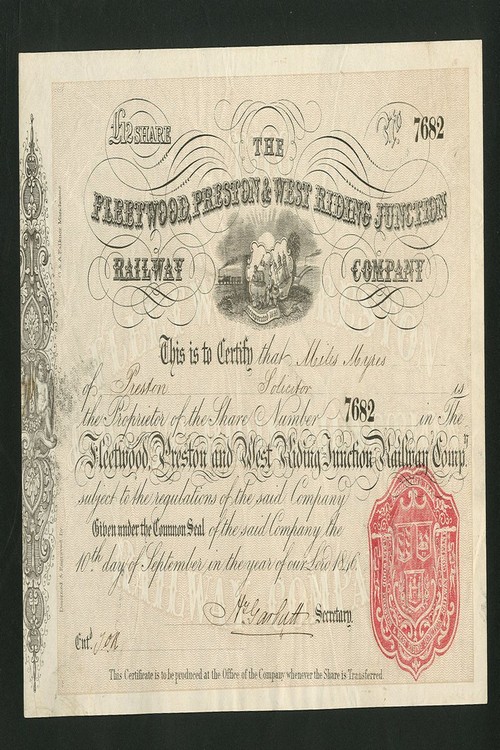 £12 SHARE
No 7682
THE
FLEETWOOD, PRESTON & WEST RIDING JUNCTION
RAILWAY COMPANY
This is to Certify that Miles Myres
of Preston Solicitor is
the Proprietor of the Share Number 7682 in The
Fleetwood, Preston and West Riding Junction Railway Compy
subject to the regulations of the said Company
Given under the Common Seal of the said Company the
10th day of September in the year of our Lord 1846.
Secretary.
Entd.
This Certificate is to be produced at the Office of the Company whenever the Share is Transferred.